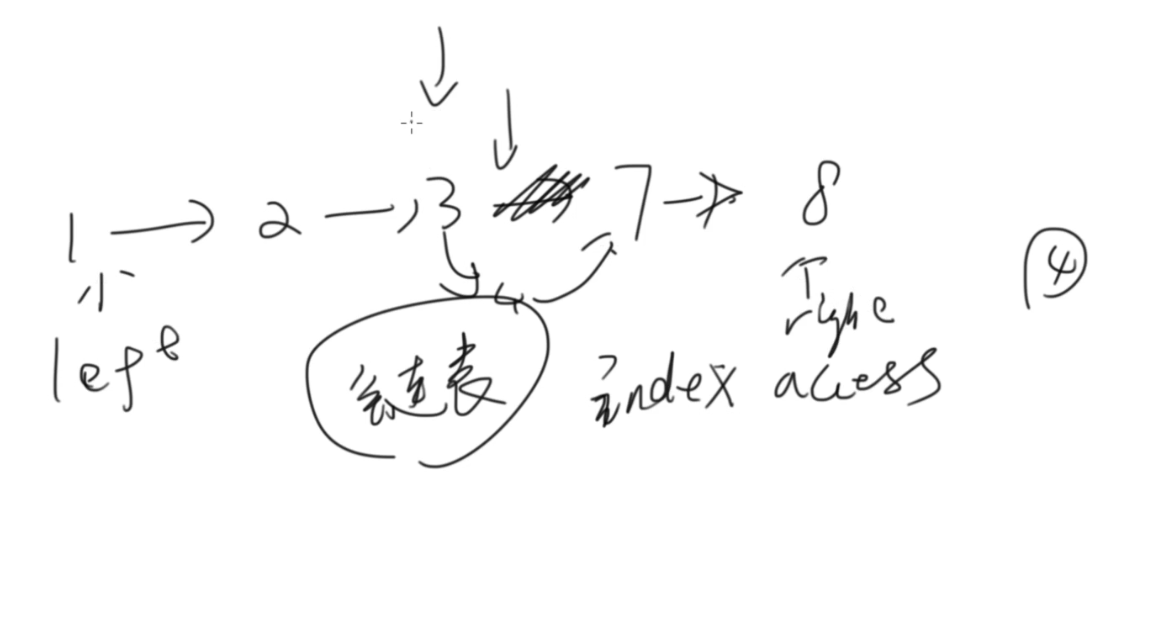 1 → 2 → 3 7 → 8
4
④
left
right
链表
index access